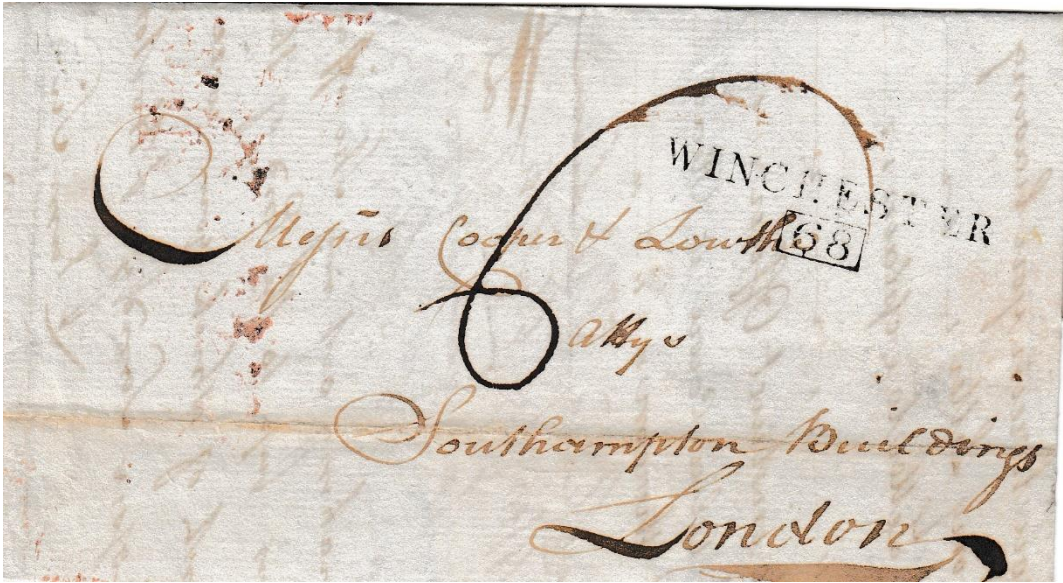 WINCHESTER
68
Messrs Cooper & Lowth
Attys
6
Southampton Buildings
London